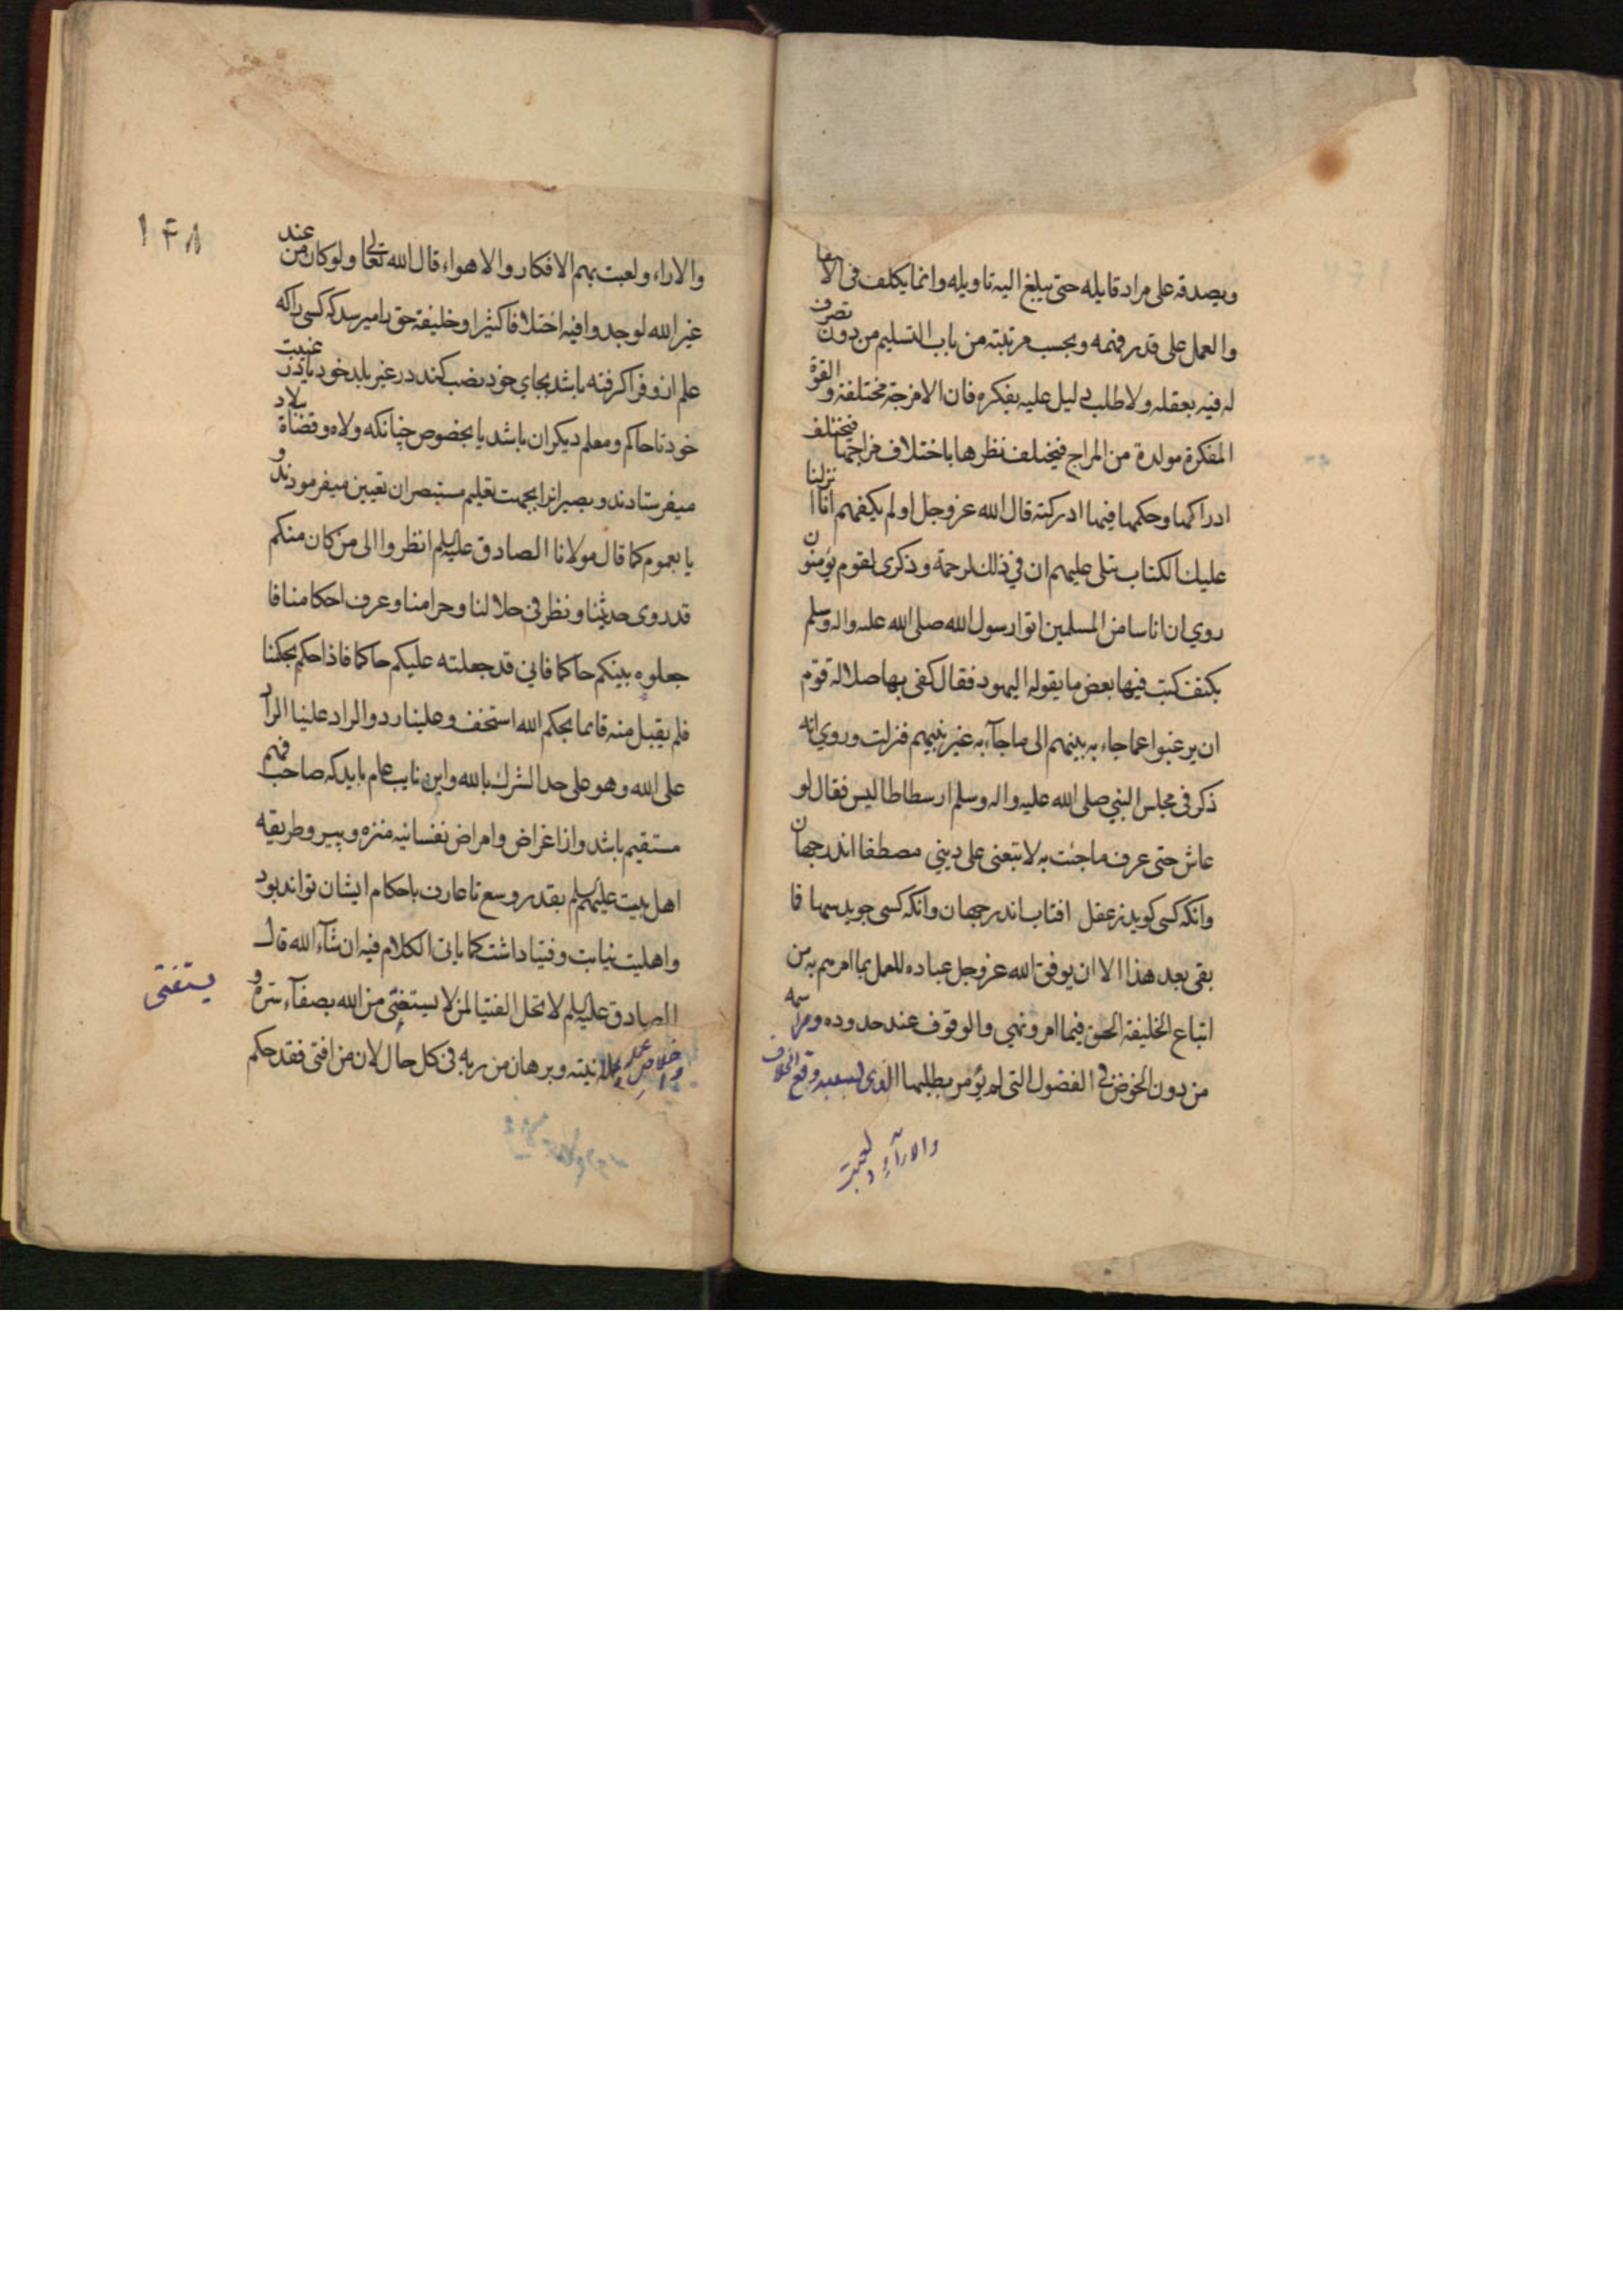 ويصدقه على مراد قايله حتى يبلغ اليه تاويله وانما يكلف فى الاتقا
والعمل على قدر فهمه وبحسب مرتبته من باب التسليم من دون تصرف
له فيه بعقله ولا طلب دليل عليه بفكره فان الامزجة مختلفة والقوة
المفكرة مولدة من المزاج فيختلف نظرها باختلاف مزاجها فيختلف
ادراكها وحكمها فيما ادركته قال الله عز وجل اولم يكفهم انا انزلنا
عليك الكتاب يتلى عليهم ان في ذلك لرحمة وذكرى لقوم يؤمنون
روي ان اناسا من المسلمين اتوا رسول الله صلى الله عليه واله وسلم
بكتف كتب فيها بعض ما يقوله اليهود فقال كفى بها ضلالة قوم
ان يرغبوا عما جاء به نبيهم الى ما جآء به غير نبيهم فنزلت وروي انه
ذكر فى مجلس النبي صلى الله عليه واله وسلم ارسطاطاليس فقال لو
عاش حتى عرف ما جئت به لاتبعنى على ديني مصطفا اندر جهان
وانكه كسى كويد ز عقل افتاب اندر جهان وانكه كسى جويد سها فا
بقى بعد هذا الا ان يوفق الله عز وجل عباده للعمل بما امرهم به من
اتباع الخليفة الحق فيما امر ونهى والوقوف عند حدوده ومراسمه
من دون الخوض في الفضول التى لم يؤمر بطلبها الذى لسببه وقع الخلاف
والارآء ولعبت
١٤٨
والاراء ولعبت بهم الافكار والاهواء قال الله تعالى ولو كان من عند
غير الله لوجدوا فيه اختلافا كثيرا وخليفه حق را ميرسد كه كسى را كه
علم ازو فرا كرفته باشد بجاي خود نصب كند در غير بلد خود يا در غيبت
خود تا حاكم ومعلم ديكران باشد يا بخصوص چنانكه ولاه وقضاة ببلاد
ميفرستادند وبصيرانرا بجهت تعليم مستبصران تعيين ميفرمودند و
يا بعموم كما قال مولانا الصادق عليه السلم انظروا الى من كان منكم
قد روى حديثنا ونظر في حلالنا وحرامنا وعرف احكامنا فا
جعلوه بينكم حاكما فاني قد جعلته عليكم حاكما فاذا حكم بحكمنا
فلم يقبل منه فانما بحكم الله استخف وعلينا رد والراد علينا الراد
على الله وهو على حد الشرك بالله واين نايب عام بايد كه صاحب فهم
مستقيم باشد واز اغراض وامراض نفسانيه منزه وپيرو طريقه
اهل بيت عليهم السلم بقدر وسع تا عارف باحكام ايشان تواند بود
واهليت نيابت وفتيا داشت كما ياتى الكلام فيه ان شآء الله قال
الصادق عليه السلم لا تحل الفتيا لمن لا يستفتى من الله بصفآء سره و
يستفتى
واخلاص عمله وعلانيته وبرهان من ربه فى كل حال لان من افتى فقد حكم